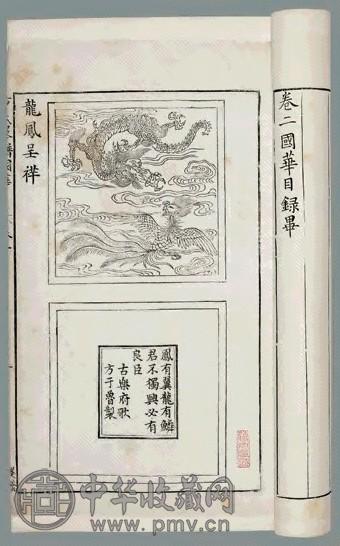 卷二國華目錄畢
龍鳳呈祥
鳳有翼龍有鱗
君不獨興必有
良臣
古樂府歌
方于魯製
中华收藏网
www.pmv.cn